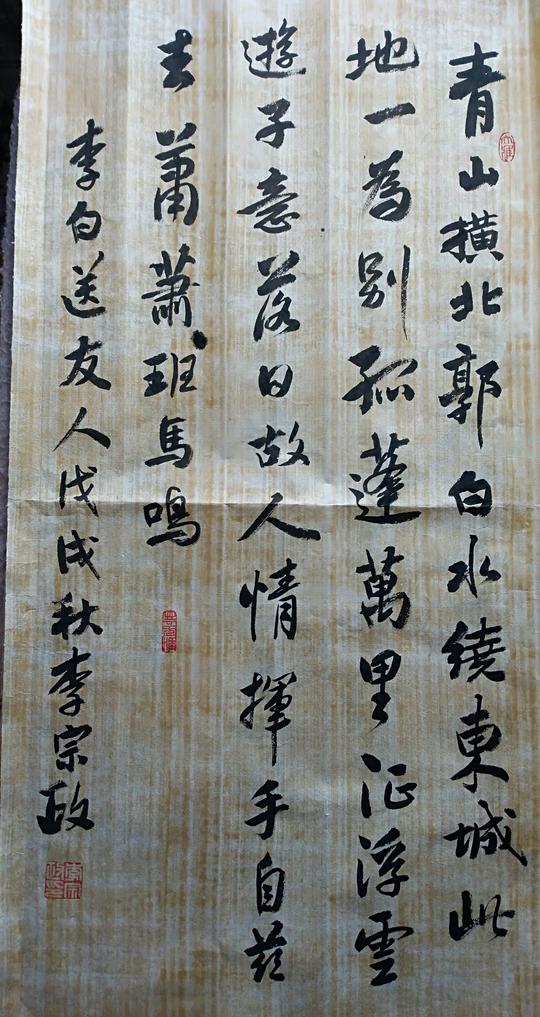 青山橫北郭白水繞東城此
地一為別孤蓬萬里征浮雲
遊子意落日故人情揮手自茲
去蕭蕭班馬鳴
李白送友人戊戌秋李宗政